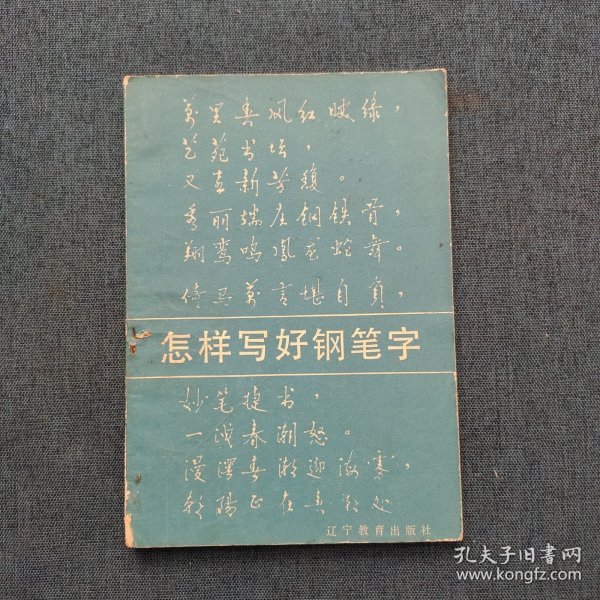 万里春风红映绿，
艺苑书坛，
又直新芳馥。
秀丽端庄钢铁骨，
翔鸾鸣凤龙蛇舞。
倚马万言堪自负，
怎样写好钢笔字
妙笔捷书，
一浅春潮怒。
漫泽春潮迎海寒，
朝阳正在春潮处
辽宁教育出版社
孔夫子旧书网
www.kongfz.com